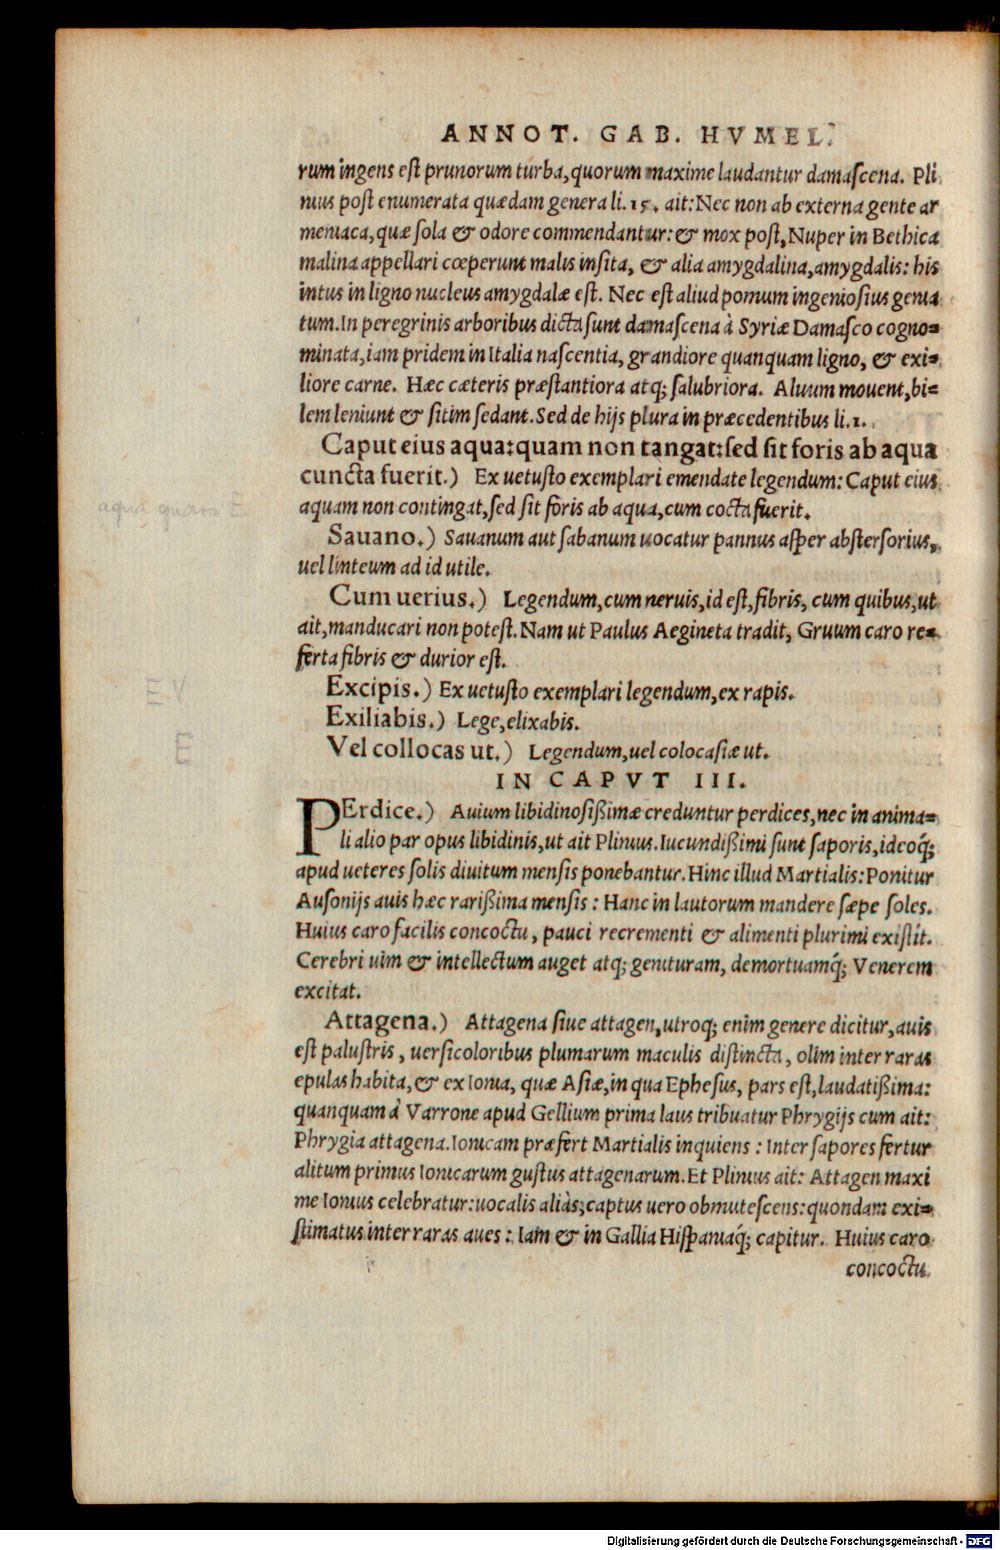 ANNOT. GAB. HVMEL.
rum ingens est prunorum turba, quorum maxime laudantur damascena. Pli
nius post enumerata quædam genera li. 15. ait: Nec non ab externa gente ar
meniaca, quæ sola & odore commendantur: & mox post, Nuper in Bethica
malina appellari cœperunt malis insita, & alia amygdalina, amygdalis: his
intus in ligno nucleus amygdalæ est. Nec est aliud pomum ingeniosius genia
tum. In peregrinis arboribus dicta sunt damascena à Syriæ Damasco cogno=
minata, iam pridem in Italia nascentia, grandiore quanquam ligno, & exi=
liore carne. Hæc cæteris præstantiora atq; salubriora. Aluum mouent, bi=
lem leniunt & sitim sedant. Sed de hijs plura in præcedentibus li. 1.
Caput eius aqua: quam non tangat: sed sit foris ab aqua
cuncta fuerit.) Ex uetusto exemplari emendate legendum: Caput eius
aquam non contingat, sed sit foris ab aqua, cum cocta fuerit.
aqua quam E
Sauano.) Sauanum aut sabanum uocatur pannus asper abstersorius,
uel linteum ad id utile.
Cum uerius.) Legendum, cum neruis, id est, fibris, cum quibus, ut
ait, manducari non potest. Nam ut Paulus Aegineta tradit, Gruum caro re=
ferta fibris & durior est.
Excipis.) Ex uetusto exemplari legendum, ex rapis.
E.V
Exiliabis.) Lege, elixabis.
Vel collocas ut.) Legendum, uel colocasiæ ut.
E
IN CAPVT III.
PErdice.) Auium libidinosißimæ creduntur perdices, nec in anima=
li alio par opus libidinis, ut ait Plinius. Iucundißimi sunt saporis, ideoq́;
apud ueteres solis diuitum mensis ponebantur. Hinc illud Martialis: Ponitur
Ausonijs auis hæc rarißima mensis: Hanc in lautorum mandere sæpe soles.
Huius caro facilis concoctu, pauci recrementi & alimenti plurimi existit.
Cerebri uim & intellectum auget atq; genituram, demortuamq́; Venerem
excitat.
Attagena.) Attagena siue attagen, utroq; enim genere dicitur, auis
est palustris, uersicoloribus plumarum maculis distincta, olim inter raras
epulas habita, & ex Ionia, quæ Asiæ, in qua Ephesus, pars est, laudatißima:
quanquam à Varrone apud Gellium prima laus tribuatur Phrygijs cum ait:
Phrygia attagena. Ionicam præfert Martialis inquiens: Inter sapores fertur
alitum primus Ionicarum gustus attagenarum. Et Plinius ait: Attagen maxi
me Ionius celebratur: uocalis aliàs; captus uero obmutescens: quondam exi=
stimatus inter raras aues: Iam & in Gallia Hispaniaq́; capitur. Huius caro
concoctu
Digitalisierung gefördert durch die Deutsche Forschungsgemeinschaft - DFG